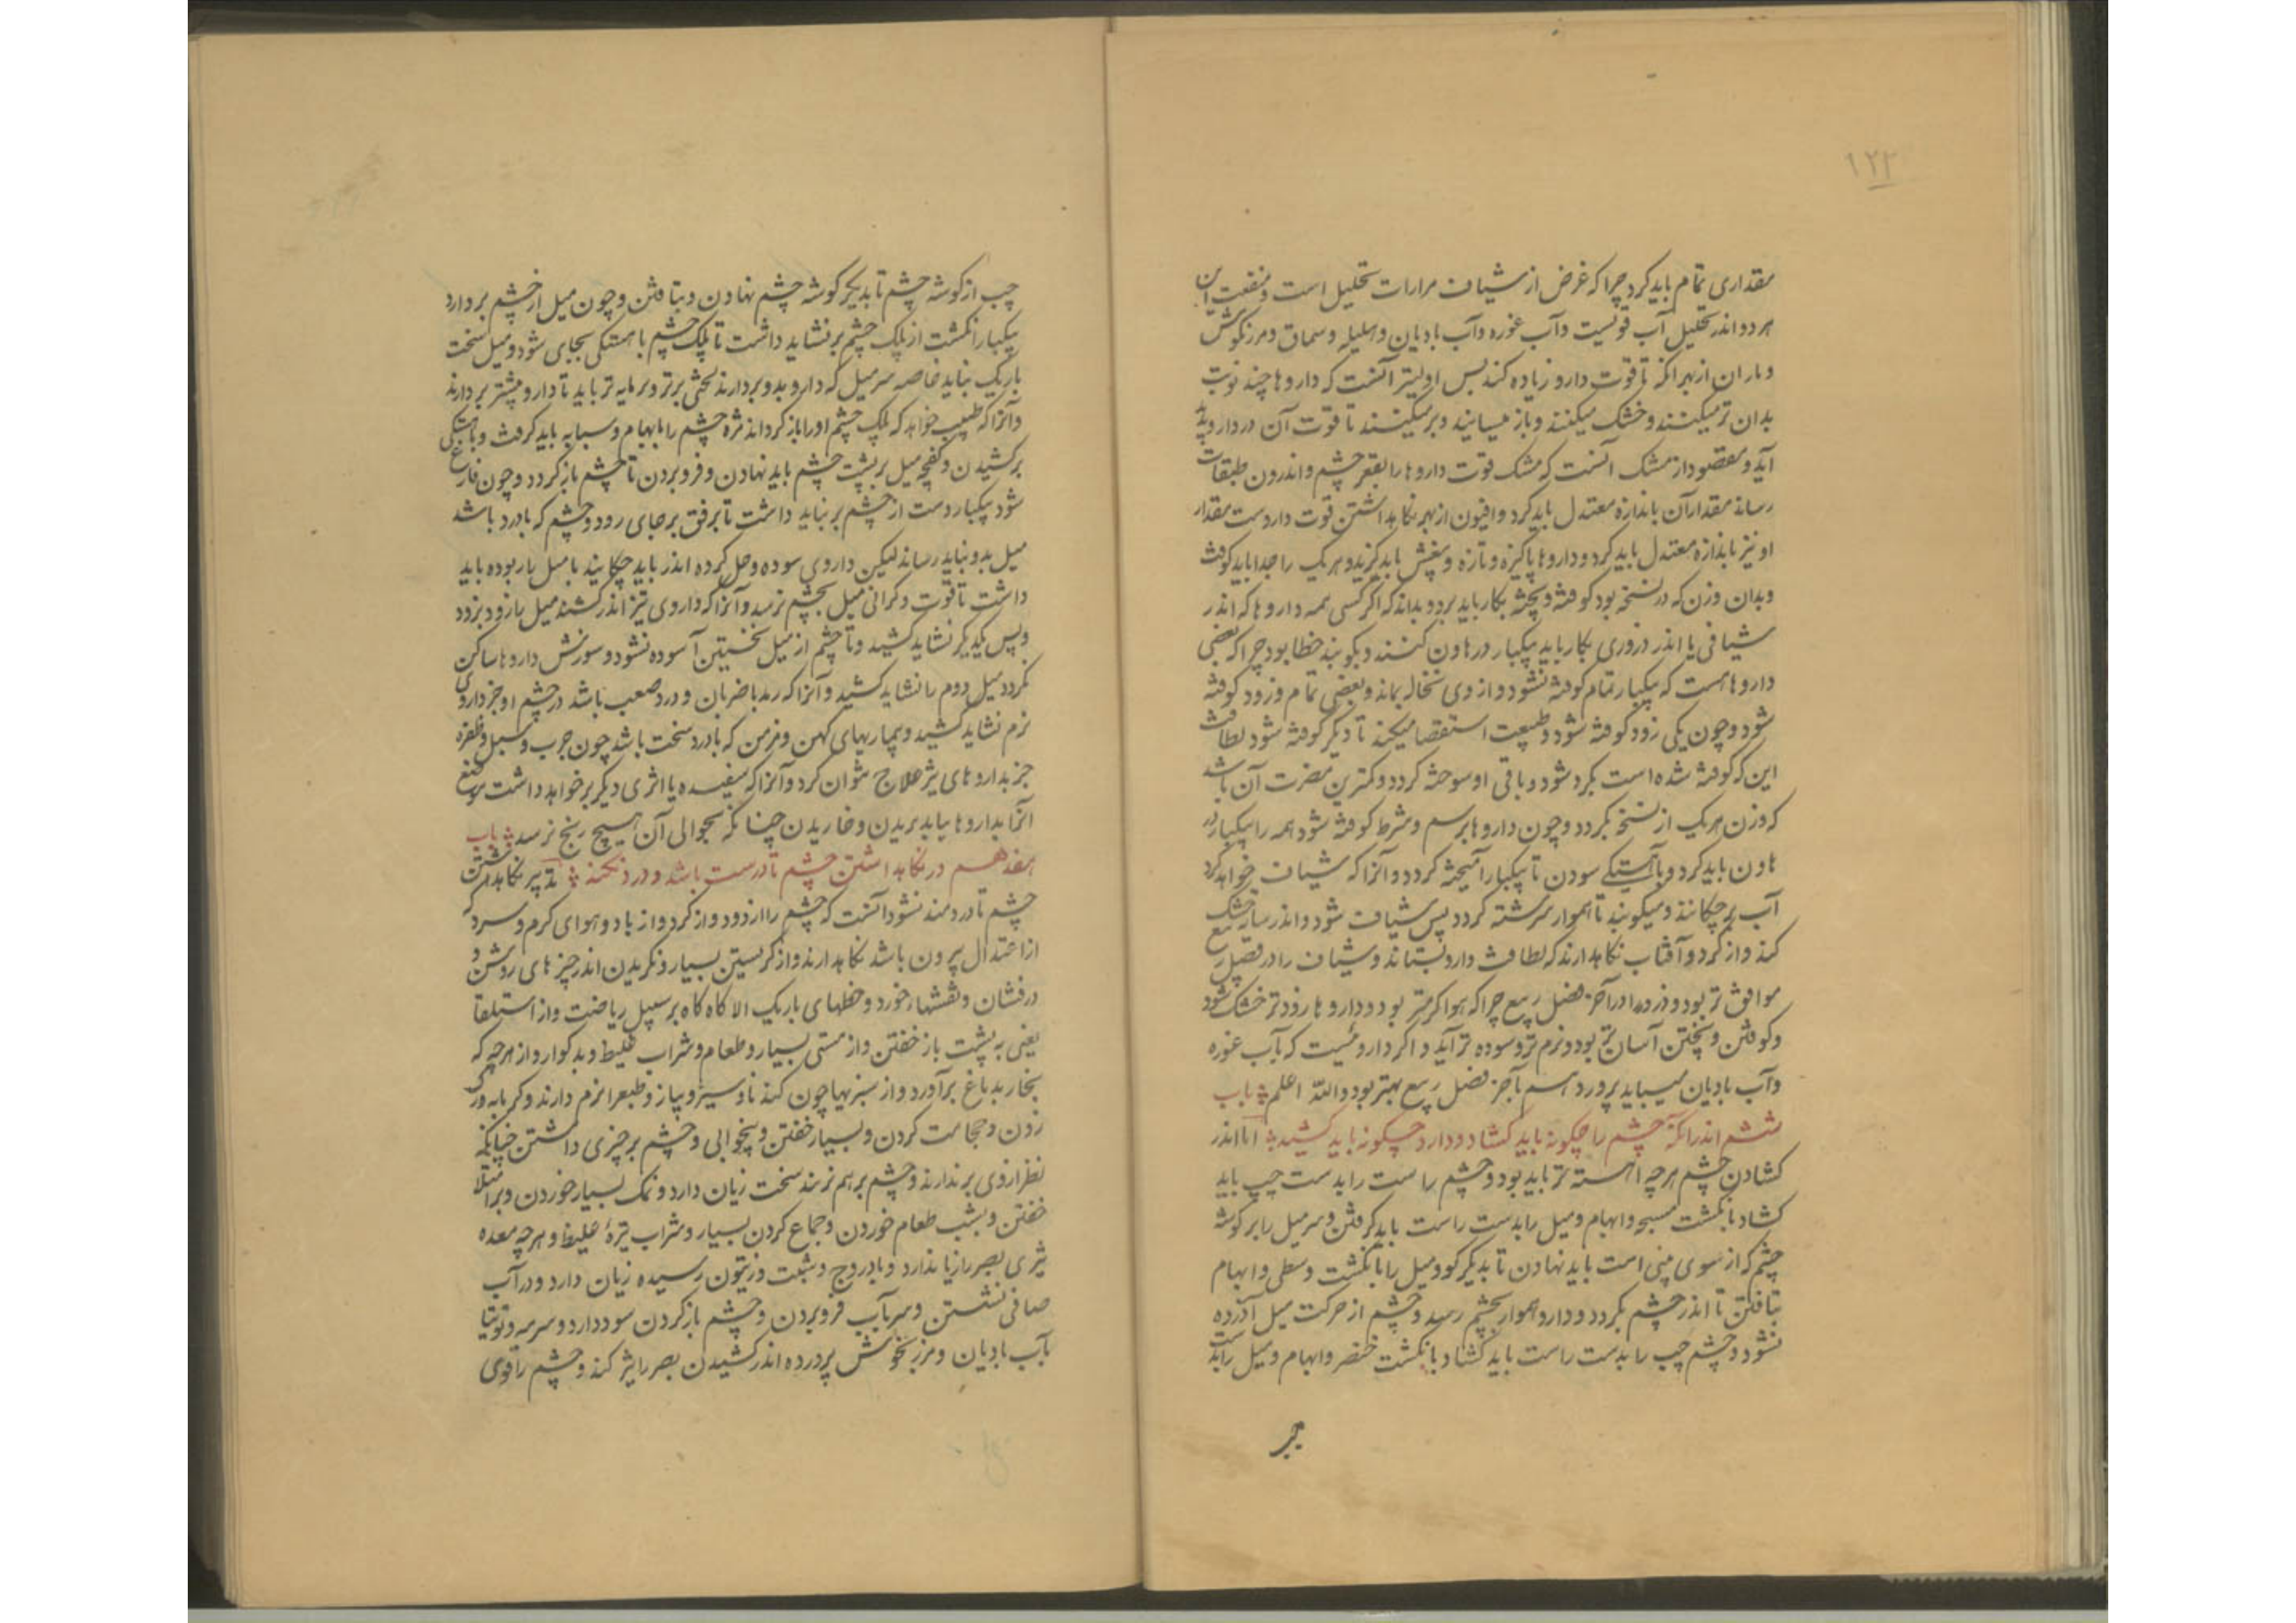 ۱۲۲
مقداری تمام باید کرد چرا که غرض از شیاف مرارات تحلیل است و منفعت این
هر دو اندر تحلیل آب قویست و آب غوره و آب بادیان و هلیله و سماق و مرزنگوش
و باران از بهر آنکه تا قوت دارو زیاده کند پس اولیتر آنست که داروها چند نوبت
بدان تر میکنند و خشک میکنند و باز میسایند و بر میکنند تا قوت آن در دارو پدید
آید و مقصود از مشک آنست که مشک قوت داروها را بقعر چشم و اندرون طبقات
رساند مقدار آن باندازه معتدل باید کرد و افیون از بهر نکاهداشتن قوت داروست مقدار
او نیز باندازه معتدل باید کرد و داروها پاکیزه و تازه و بیغش باید گزید و هر یک را جدا باید کوفت
و بدان وزن که در نسخه بود کوفته و بیخته بکار باید برد و بداند که اکر کسی همه داروها که اندر
شیافی یا اندر ذروری بکار باید بیکبار در هاون کنند و بکوبند خطا بود چرا که بعضی
داروها هست که بیکبار تمام کوفته نشود و از وی نخاله بماند و بعضی تمام و زود کوفته
شود و چون یکی زود کوفته شود و طبیعت استقصا میکند تا دیگر کوفته شود لطافت
این که کوفته شده است بکرد شود و باقی او سوخته کردد و کمترین مضرت آن باشد
که وزن هر یک از نسخه بکردد و چون داروها برسم و شرط کوفته شود همه را بیکبار در
هاون باید کرد و بآهستکی سودن تا بیکبار آمیخته کردد و آنرا که شیاف خواهد کرد
آب بر چکانند و میکوبند تا هموار سرشته کردد پس شیاف شود و اندر سایه خشک
کند و از کرد و آفتاب نکاهدارند که لطافت دارو بستاند و شیاف را در فصل ربیع
موافق تر بود و ذرور را در آخر فصل ربیع چرا که هوا کرمتر بود و داروها زودتر خشک شود
و کوفتن و بیختن آسان تر بود و نرم تر و سوده تر آید و اکر داروئیست که بآب غوره
و آب بادیان میباید پرورد هم بآخر فصل ربیع بهتر بود والله اعلم باب
ششم اندر آنکه چشم را چکونه باید کشاد و دارو چکونه باید کشید اما اندر
کشادن چشم هر چه آهسته تر باید بود و چشم راست را بدست چپ باید
کشاد بانکشت مسبحه و ابهام و میل را بدست راست باید کرفتن و سر میل را بر کوشه
چشم که از سوی بینی است باید نهادن تا بدیکر کو و میل را بانکشت وسطی و ابهام
بتافتن تا اندر چشم بکردد و دارو هموار بچشم رسد و چشم از حرکت میل آزرده
نشود و چشم چپ را بدست راست باید کشاد بانکشت خنصر و ابهام و میل را بدست
چپ از کوشه چشم تا بدیکر کوشه چشم نهادن و بتافتن و چون میل از چشم بردارد
بیکبار انکشت از پلک چشم بر نشاید داشت تا پلک چشم باهستکی بجای شود و میل سخت
باریک نباید خاصه سر میل که دارو بدو بردارند لختی برتر و پرمایه تر باید تا دارو بیشتر بردارند
و آنرا که طبیب خواهد که پلک چشم او را باز کرداند مژه چشم را بابهام و سبابه باید کرفت و بآهستکی
بر کشیدن و کفچه میل بر پشت چشم باید نهادن و فرو بردن تا چشم باز کردد و چون فارغ
شود بیکبار دست از چشم بر نباید داشت تا برفق بر جای رود و چشم که با درد باشد
میل بدو نباید رساند لیکن داروی سوده و حل کرده اندر باید چکانید یا میل باربوده باید
داشت تا قوت و کرانی میل بچشم نرسد و آنرا که داروی تیز اندر کشند میل بازود بزود
و پس یکدیکر نشاید کشید و تا چشم از میل نخستین آسوده نشود و سوزش داروها ساکن
نکردد میل دوم را نشاید کشید و آنرا که رمد با ضربان و درد صعب باشد در چشم او جز داروی
نرم نشاید کشید و بیماریهای کهن و مزمن که با درد سخت باشد چون جرب و سبل و ظفره
جز بداروهای تیز علاج نتوان کرد و آنرا که سفیده یا اثری دیکر بر خواهد داشت موضع
آنرا بداروها بباید بریدن و خاریدن چنانکه بحوالی آن هیچ رنج نرسد باب
هفدهم در نکاهداشتن چشم تا درست باشد و درد نکند تدبیر نکاهداشتن
چشم تا دردمند نشود آنست که چشم را از دود و از کرد و از باد و هوای کرم و سرد که
از اعتدال بیرون باشد نکاهدارند و از کریستن بسیار و نکریدن اندر چیزهای روشن و
درفشان و نقشهای خورد و خطهای باریک الا کاه کاه بر سبیل ریاضت و از استلقا
یعنی به پشت باز خفتن و از مستی بسیار و طعام و شراب غلیظ و بدکوار و از هر چه که
بخار بدماغ برآورد و از سبزیها چون کندنا و سیر و پیاز و طبع را نرم دارند و کرمابه و رک
زدن و حجامت کردن و بسیار خفتن و بیخوابی و چشم بر چیزی داشتن چنانکه
نظر از وی برندارند و چشم بر هم نزنند سخت زیان دارد و نمک بسیار خوردن و بر امتلا
خفتن و بشب طعام خوردن و جماع کردن بسیار و شراب تیره غلیظ و هر چه معده
بصر را زیان دارد و بادروج و شبت و زیتون رسیده زیان دارد و در آب
صافی نشستن و سر بآب فرو بردن و چشم باز کردن سود دارد و سرمه و توتیا
بآب بادیان و مرزنجوش پرورده اندر کشیدن بصر را تیز کند و چشم را قوی